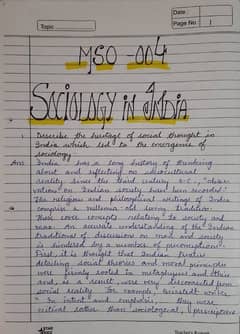 Date :
Page No : 1
Topic
MSO - 004
SOCIOLOGY IN INDIA
1. Describe the heritage of social thought in
India which led to the emergence of
sociology
Ans India has a long history of thinking
about and reflecting on sociocultural
reality. Since the third century B.C., "obser
vations on Indian society have been recorded.
The religious and philosophical writings of India
comprise a millenia old living tradition.
There were concepts relating to society and
man. An accurate understanding of the Indian
traditions of discussions on man and society
is hindered by a number of preconceptions.
First, it is thought that Indian
social theories and moral principles
were firmly rooted in metaphysics and ethics
and, as a result were very disconnected from
social reality. For example, Kewalel voices
" In intent and emphasis, they were
critical rather than sociological, prescriptive